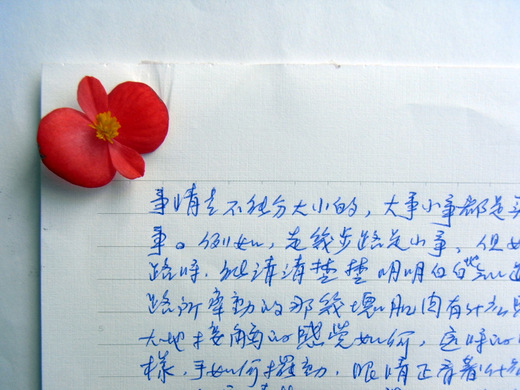 事情是不能分大小的，大事小事都是
事。例如，走幾步路是小事，但如
路時，能清清楚楚明明白白
路所牽動的那幾塊肌肉有什么
大地接觸的感覺如何，這時的
樣，手如何擺動，眼睛正看著什